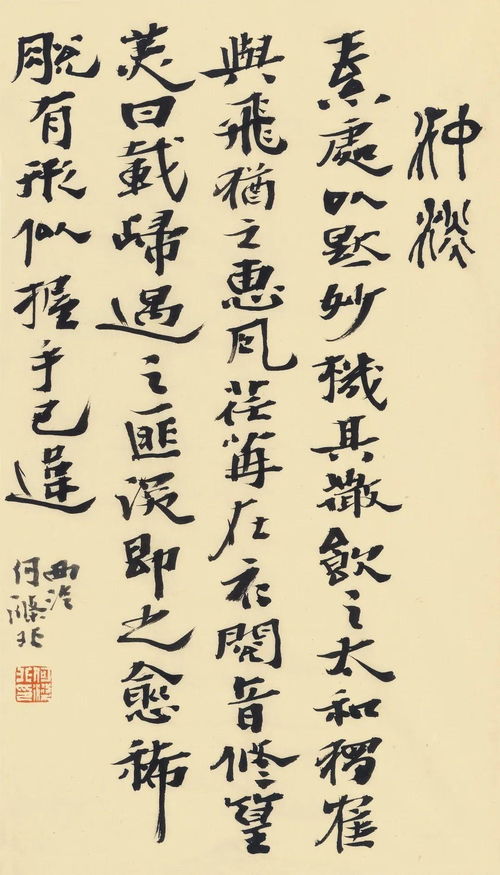 沖淡
素處以默妙機其微飲之太和獨隺
與飛猶之惠風荏苒在衣閱音修篁
美曰載歸遇之匪深即之愈稀
脫有形似握手已違
西泠
何滌非